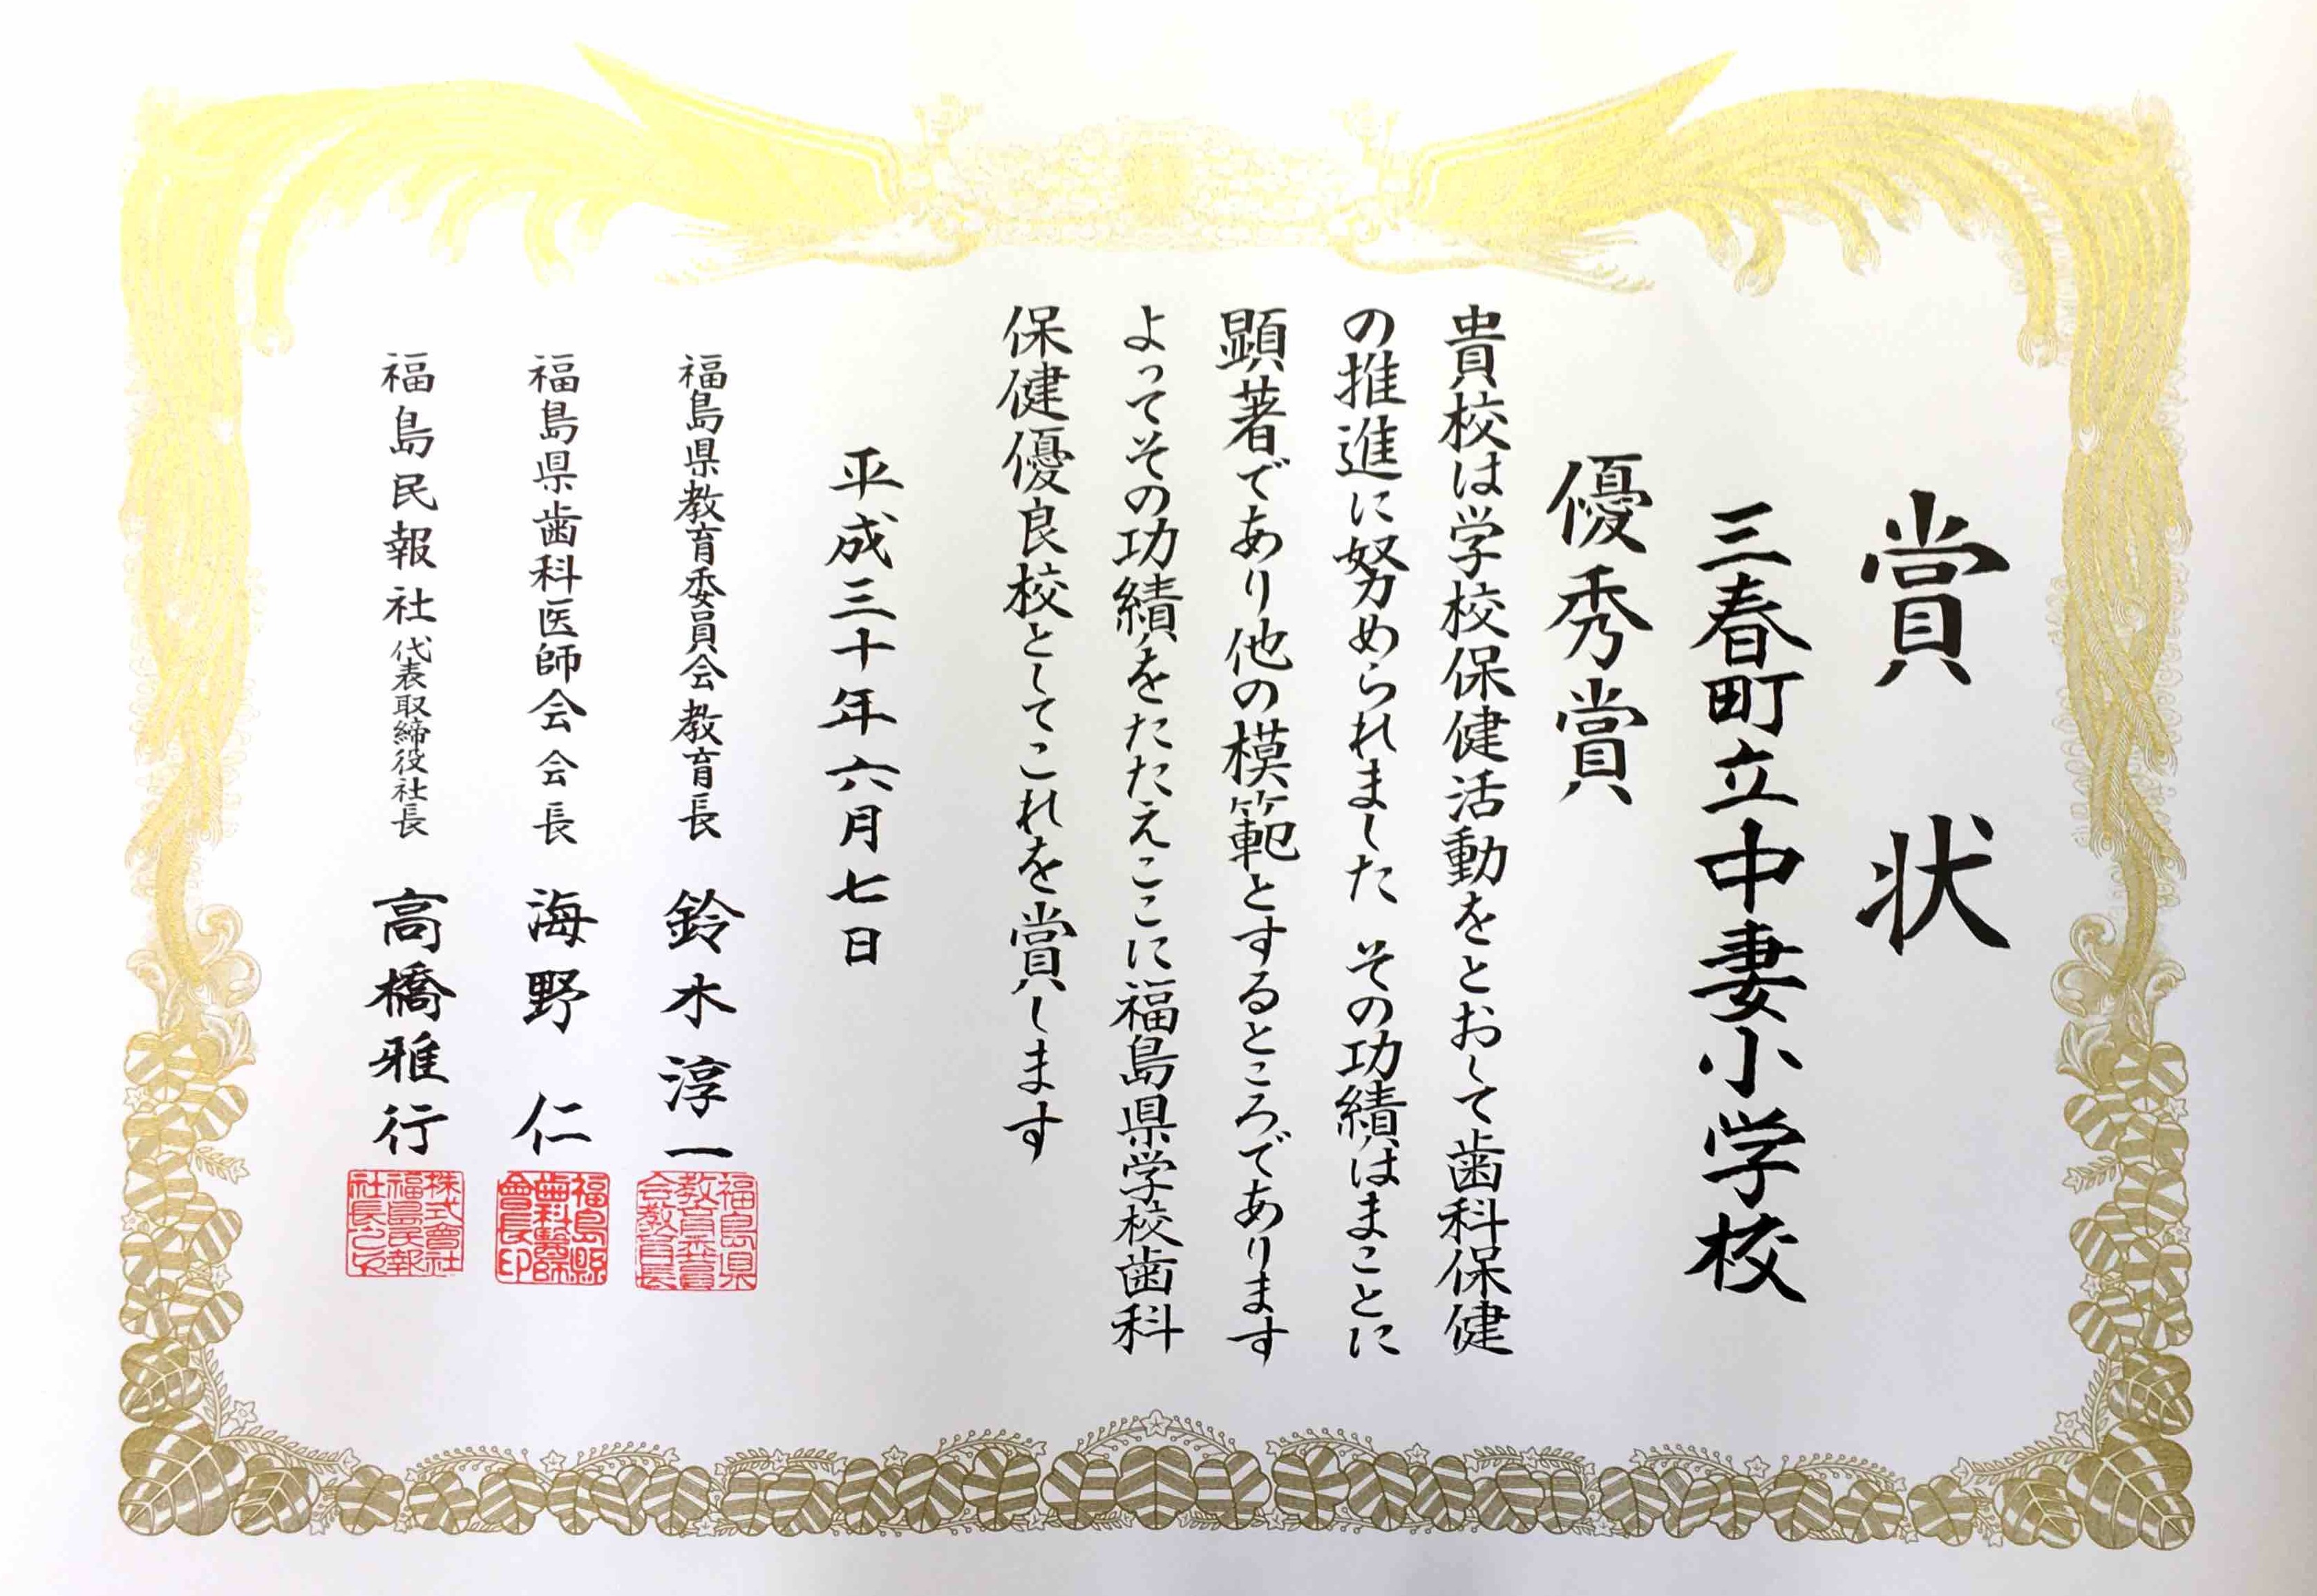 賞状
三春町立中妻小学校
優秀賞
貴校は学校保健活動をとおして歯科保健
の推進に努められました その功績はまことに
顕著であり他の模範とするところであります
よってその功績をたたえここに福島県学校歯科
保健優良校としてこれを賞します
平成三十年六月七日
福島県教育委員会教育長 鈴木淳一
福島県教育委員会教育長
福島県歯科医師会会長 海野仁
福島縣歯科醫師會長印
福島民報社代表取締役社長 高橋雅行
株式會社福島民報社長之印